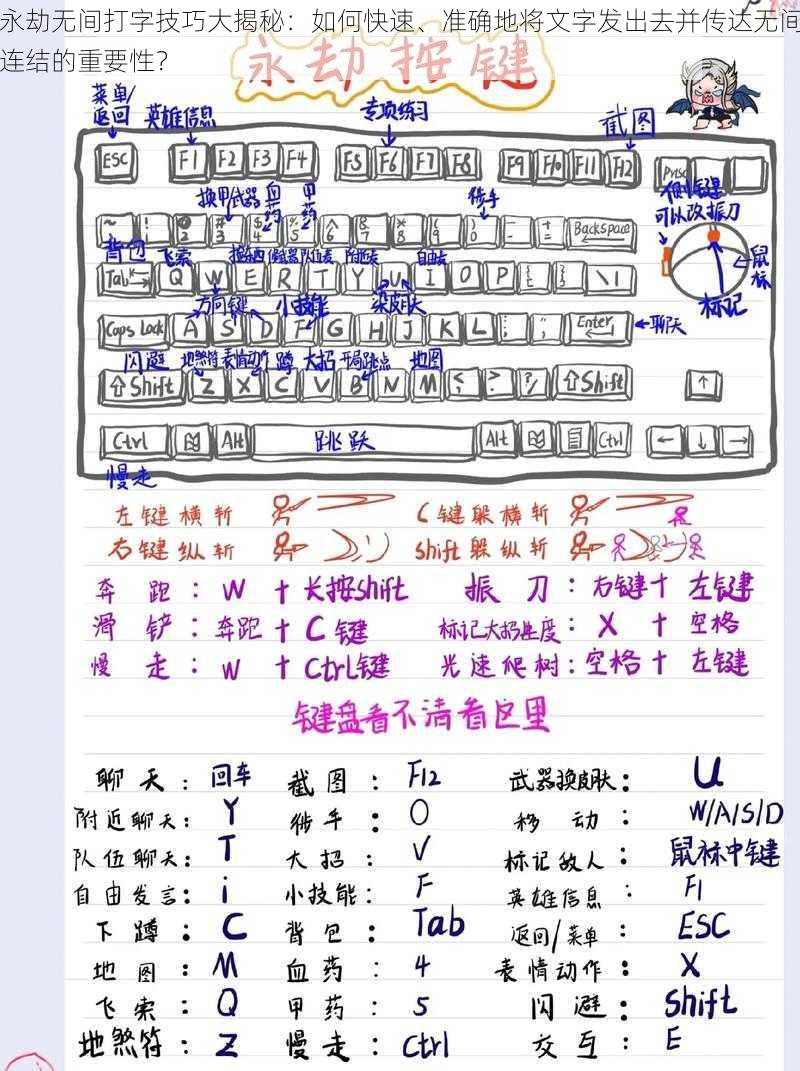 永劫无间打字技巧大揭秘：如何快速、准确地将文字发出去并传达无间
连结的重要性？
永劫按键
菜单/
返回
英雄信息
专项练习
截图
ESC F1 F2 F3 F4 F5 F6 F7 F8 F9 F10 F11 F12 PrtSc
侧键
可以改振刀
换甲 武器 血药 甲药 徒手
~ ! 2 # 3 $ 4 % 5 ^ 6 & 7 * 8 ( 9 ) 0 - - + = Backspace
背包 飞索
鼠标
Tab Q W E R T Y U I O P { [ } ] \ |
标记
方向键 小技能
Caps Lock A S D F G H J K L : ; Enter
聊天
闪避 地煞符 表情动作 蹲 大招 开局跳点 地图
⇧Shift Z X C V B N M < , ? / ⇧Shift ↑
Ctrl Alt 跳跃 Alt Ctrl ← ↓ →
慢走
左键横斩 C键躲横斩
右键纵斩 shift躲纵斩
奔跑：W+长按shift 振刀：右键+左键
滑铲：奔跑+C键 标记大招进度：X+空格
慢走：W+Ctrl键 光速爬树：空格+左键
键盘看不清看这里
聊天：回车 截图：F12 武器换皮肤：U
附近聊天：Y 徒手：O 移动：W/A/S/D
队伍聊天：T 大招：V 标记敌人：鼠标中键
自由发言：i 小技能：F 英雄信息：F1
下蹲：C 背包：Tab 返回/菜单：ESC
地图：M 血药：4 表情动作：X
飞索：Q 甲药：5 闪避：Shift
地煞符：Z 慢走：Ctrl 交互：E